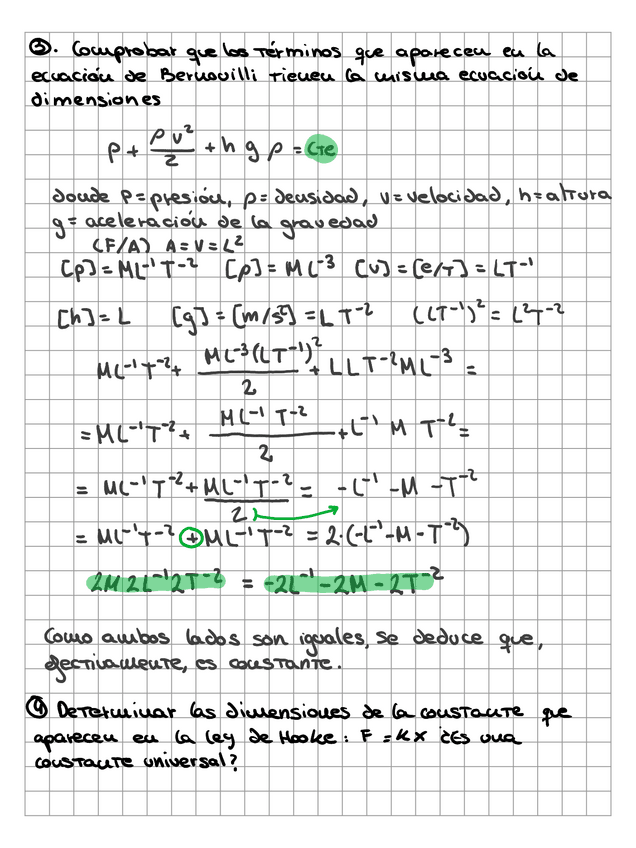 ③. Comprobar que los términos que aparecen en la
ecuación de Bernouilli tienen la misma ecuación de
dimensiones
p + ρv²/2 + h g ρ = cte
donde P = presión, ρ = densidad, v = velocidad, h = altura
g = aceleración de la gravedad
(F/A) A = V = L²
[p] = ML⁻¹T⁻² [ρ] = ML⁻³ [v] = [e/T] = LT⁻¹
[h] = L [g] = [m/s²] = LT⁻² (LT⁻¹)² = L²T⁻²
ML⁻¹T⁻² + ML⁻³(LT⁻¹)²/2 + LLT⁻²ML⁻³ =
= ML⁻¹T⁻² + ML⁻¹T⁻²/2 + L⁻¹ M T⁻² =
= ML⁻¹T⁻² + ML⁻¹T⁻²/2 = -L⁻¹ - M - T⁻²
= ML⁻¹T⁻² + ML⁻¹T⁻² = 2·(-L⁻¹ - M - T⁻²)
2M 2L⁻¹ 2T⁻² = -2L⁻¹ - 2M - 2T⁻²
Como ambos lados son iguales, se deduce que,
efectivamente, es constante.
④ Determinar las dimensiones de la constante que
aparecen en la ley de Hooke: F = KX ¿Es una
constante universal?